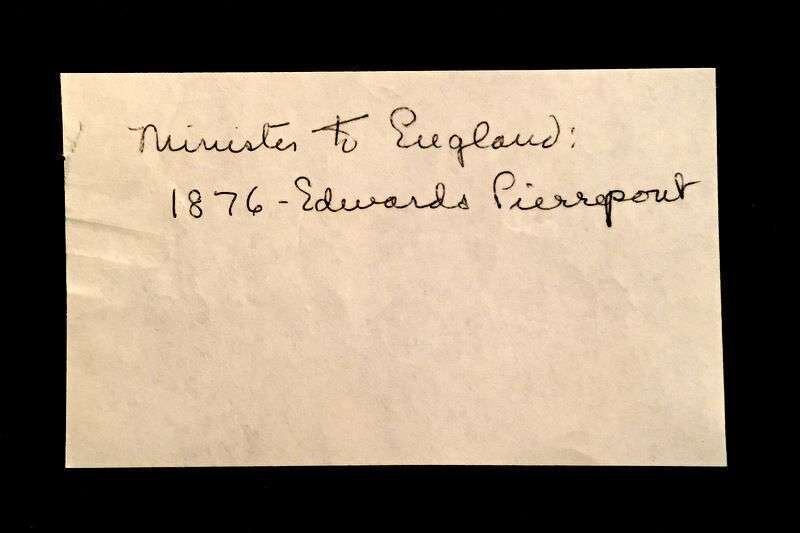 Minister to England:
1876 - Edwards Pierrepont